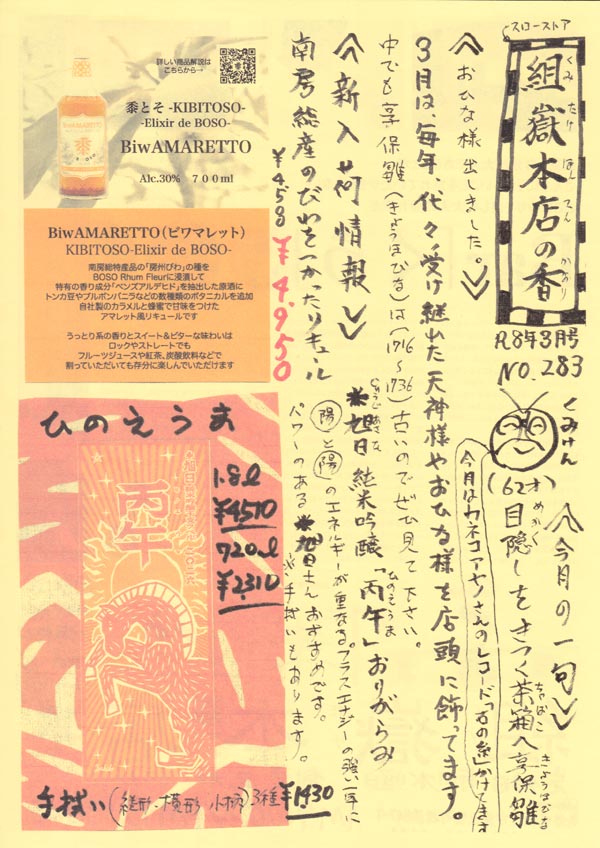 スローストア
組嶽本店の香
くみ たけ ほん てん かおり
R.8年3月号
NO.283
くみけん
(62才)
≪今月の一句≫
目隠しをきつく茶箱へ享保雛
めかく ちゃばこ きょうほびな
今月はカネコアヤノさんのレコード「石の糸」かけてます
≪おひな様出しました。≫
3月は、毎年、代々受け継れた天神様やおひな様を店頭に飾ってます。
中でも享保雛(きょうほびな)は(1716〜1736)古いのでぜひ見て下さい。
≪新入荷情報≫
*旭日純米吟醸「丙午」おりがらみ
ひのえうま
陽と陽のエネルギーが重なる。プラスエナジーの強い年に
パワーのある*旭日さんおすすめです。
手拭いもあります。
南房総産のびわをつかったリキュール
¥4,950
詳しい商品解説は
こちらから→
黍とそ -KIBITOSO-
-Elixir de BOSO-
BiwAMARETTO
Alc.30% 700ml
BiwAMARETTO(ビワマレット)
KIBITOSO-Elixir de BOSO-
南房総特産品の「房州びわ」の種を
BOSO Rhum Fleurに浸漬して
特有の香り成分「ベンズアルデヒド」を抽出した原酒に
トンカ豆やブルボンバニラなどの数種類のボタニカルを追加
自社製のカラメルと蜂蜜で甘味をつけた
アマレット風リキュールです
うっとり系の香りとスイート＆ビターな味わいは
ロックやストレートでも
フルーツジュースや紅茶、炭酸飲料などで
割っていただいても存分に楽しんでいただけます
ひのえうま
丙午
1.8l
¥4510
720ml
¥2310
手拭い(縦形・横形 小柄)3種¥1430